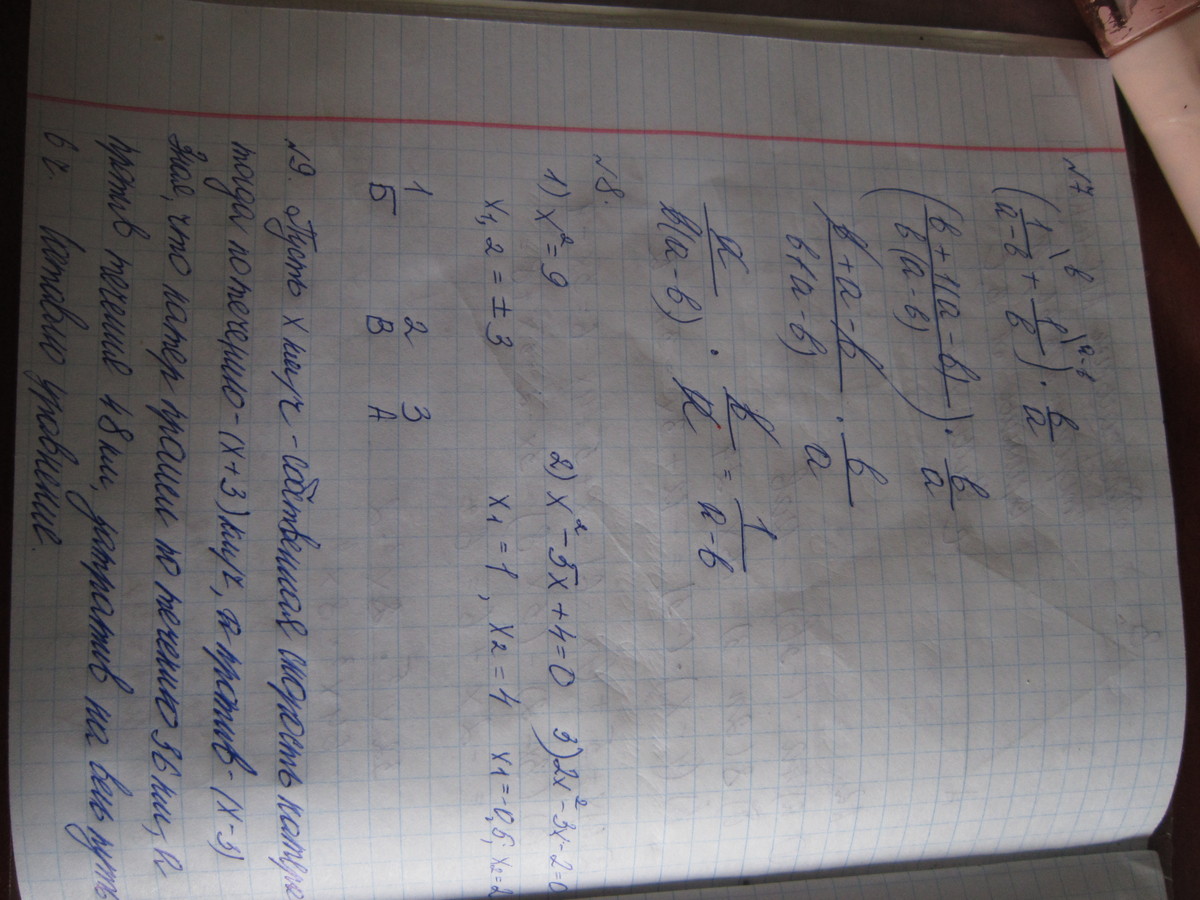 №7
(1/(a-b) \b + 1/b \a-b) · b/a
((b+1(a-b))/(b(a-b))) · b/a
(b+a-b)/(b+a-b) · b/a
a/(b(a-b)) · b/a = 1/(a-b)
№8.
1) x²=9 2) x²-5x+4=0 3) 2x²-3x-2=0
x1,2=±3 x1=1, x2=4 x1=-0,5; x2=2
1 2 3
Б В А
№9. Пусть х км/ч - собственная скорость катера
тогда по течению-(x+3)км/ч, а против-(x-3)
Зная, что катер прошел по течению 36км, а
против течение 48км, затратив на весь путь
6 ч.